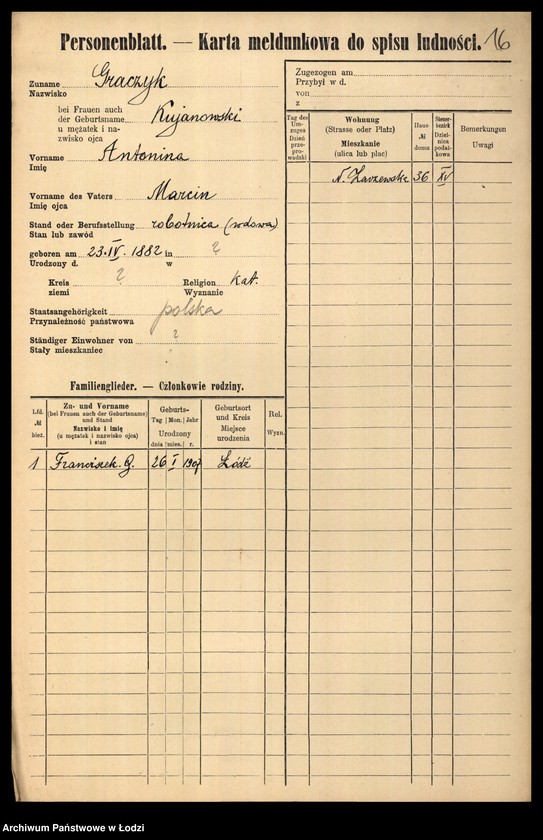 Personenblatt. — Karta meldunkowa do spisu ludności. 16
Zuname Graczyk
Nazwisko
bei Frauen auch
der Geburtsname Kujanowski
u mężatek i na-
zwisko ojca
Vorname Antonina
Imię
Vorname des Vaters Marcin
Imię ojca
Stand oder Berufsstellung robotnica (wdowa)
Stan lub zawód
geboren am 23.IV.1882 in ?
Urodzony d. w
Kreis ? Religion kat.
ziemi Wyznanie
Staatsangehörigkeit polska
Przynależność państwowa
Ständiger Einwohner von ?
Stały mieszkaniec
Zugezogen am
Przybył w d.
von
z
Tag des Um-zuges Dzień prze-pro-wadzki
Wohnung
(Strasse oder Platz)
Mieszkanie
(ulica lub plac)
Haus № domu
Steuer-bezirk Dziel-nica podat-kowa
Bemerkungen
Uwagi
N. Zarzewska 36 XV
Familienglieder. — Członkowie rodziny.
Lfd. № bież.
Zu- und Vorname
(bei Frauen auch der Geburtsname)
und Stand
Nazwisko i imię
(u mężatek i nazwisko ojca)
i stan
Geburts-
Tag | Mon. | Jahr
Urodzony
dnia | mies. | r.
Geburtsort
und Kreis
Miejsce
urodzenia
Rel.
Wyzn.
1 Franciszek G. 26 I 1907 Łódź
Archiwum Państwowe w Łodzi